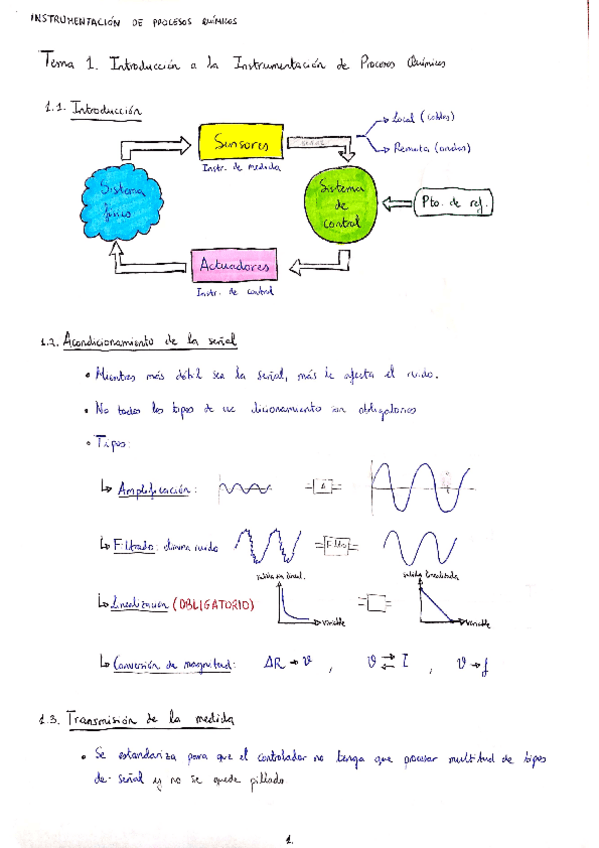 INSTRUMENTACIÓN DE PROCESOS QUÍMICOS
Tema 1. Introducción a la Instrumentación de Procesos Químicos
1.1. Introducción
Sensores
señal
Local (cables)
Remota (ondas)
Instr. de medida
Sistema
físico
Sistema
de
control
Pto. de ref.
Actuadores
Instr. de control
1.2. Acondicionamiento de la señal
• Mientras más débil sea la señal, más le afecta el ruido.
• No todos los tipos de dicionamiento son obligatorios
• Tipos:
↳ Amplificación:
A
↳ Filtrado: elimina ruido
Filtro
salida sin lineal.
salida linealizada
↳ Linealización (OBLIGATORIO)
variable
variable
↳ Conversión de magnitud: ΔR → v , v ⇄ I , v → f
1.3. Transmisión de la medida
• Se estandariza para que el controlador no tenga que procesar multitud de tipos
de señal y no se quede pillado
1.